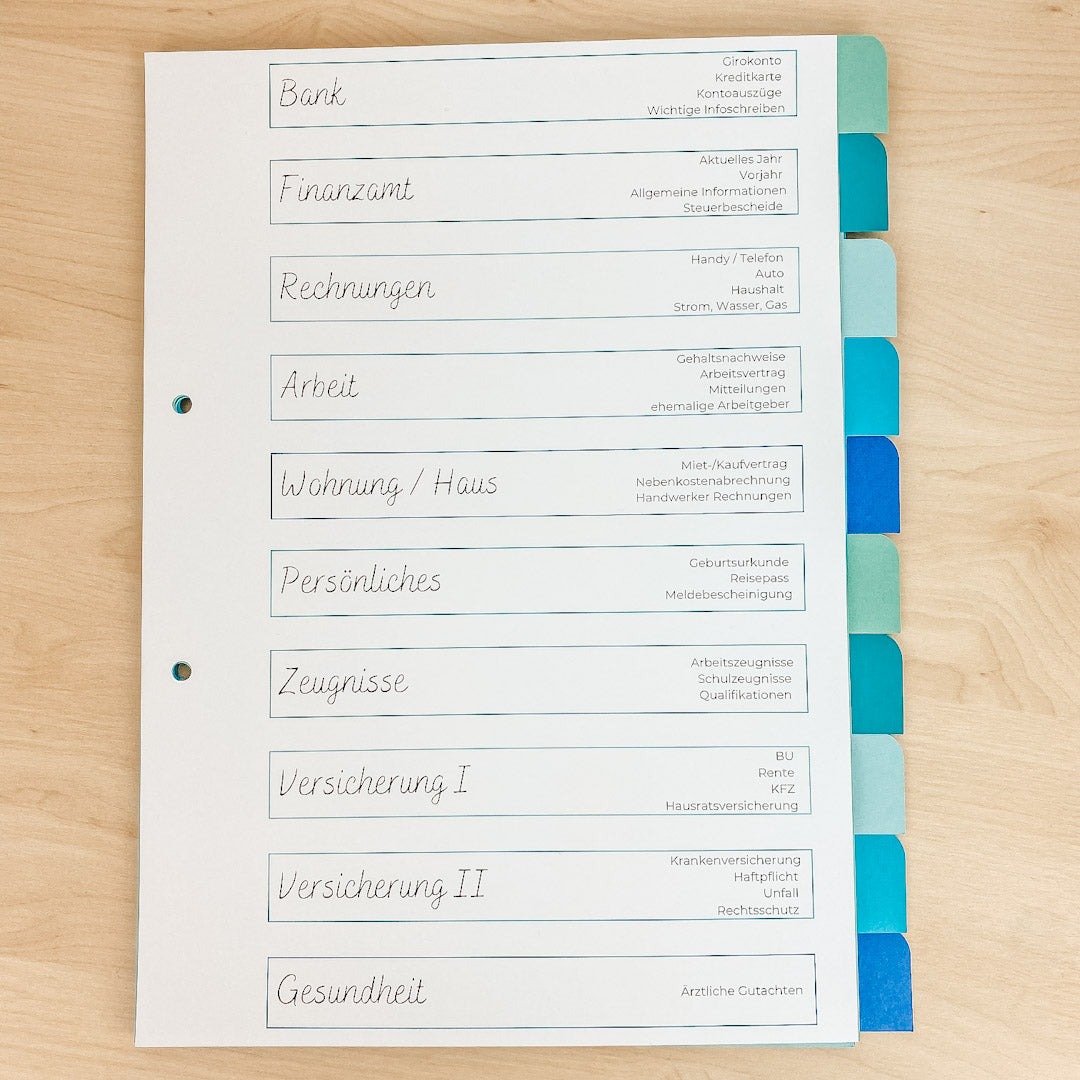 Bank
Girokonto
Kreditkarte
Kontoauszüge
Wichtige Infoschreiben
Finanzamt
Aktuelles Jahr
Vorjahr
Allgemeine Informationen
Steuerbescheide
Rechnungen
Handy / Telefon
Auto
Haushalt
Strom, Wasser, Gas
Arbeit
Gehaltsnachweise
Arbeitsvertrag
Mitteilungen
ehemalige Arbeitgeber
Wohnung / Haus
Miet-/Kaufvertrag
Nebenkostenabrechnung
Handwerker Rechnungen
Persönliches
Geburtsurkunde
Reisepass
Meldebescheinigung
Zeugnisse
Arbeitszeugnisse
Schulzeugnisse
Qualifikationen
Versicherung I
BU
Rente
KFZ
Hausratsversicherung
Versicherung II
Krankenversicherung
Haftpflicht
Unfall
Rechtsschutz
Gesundheit
Ärztliche Gutachten